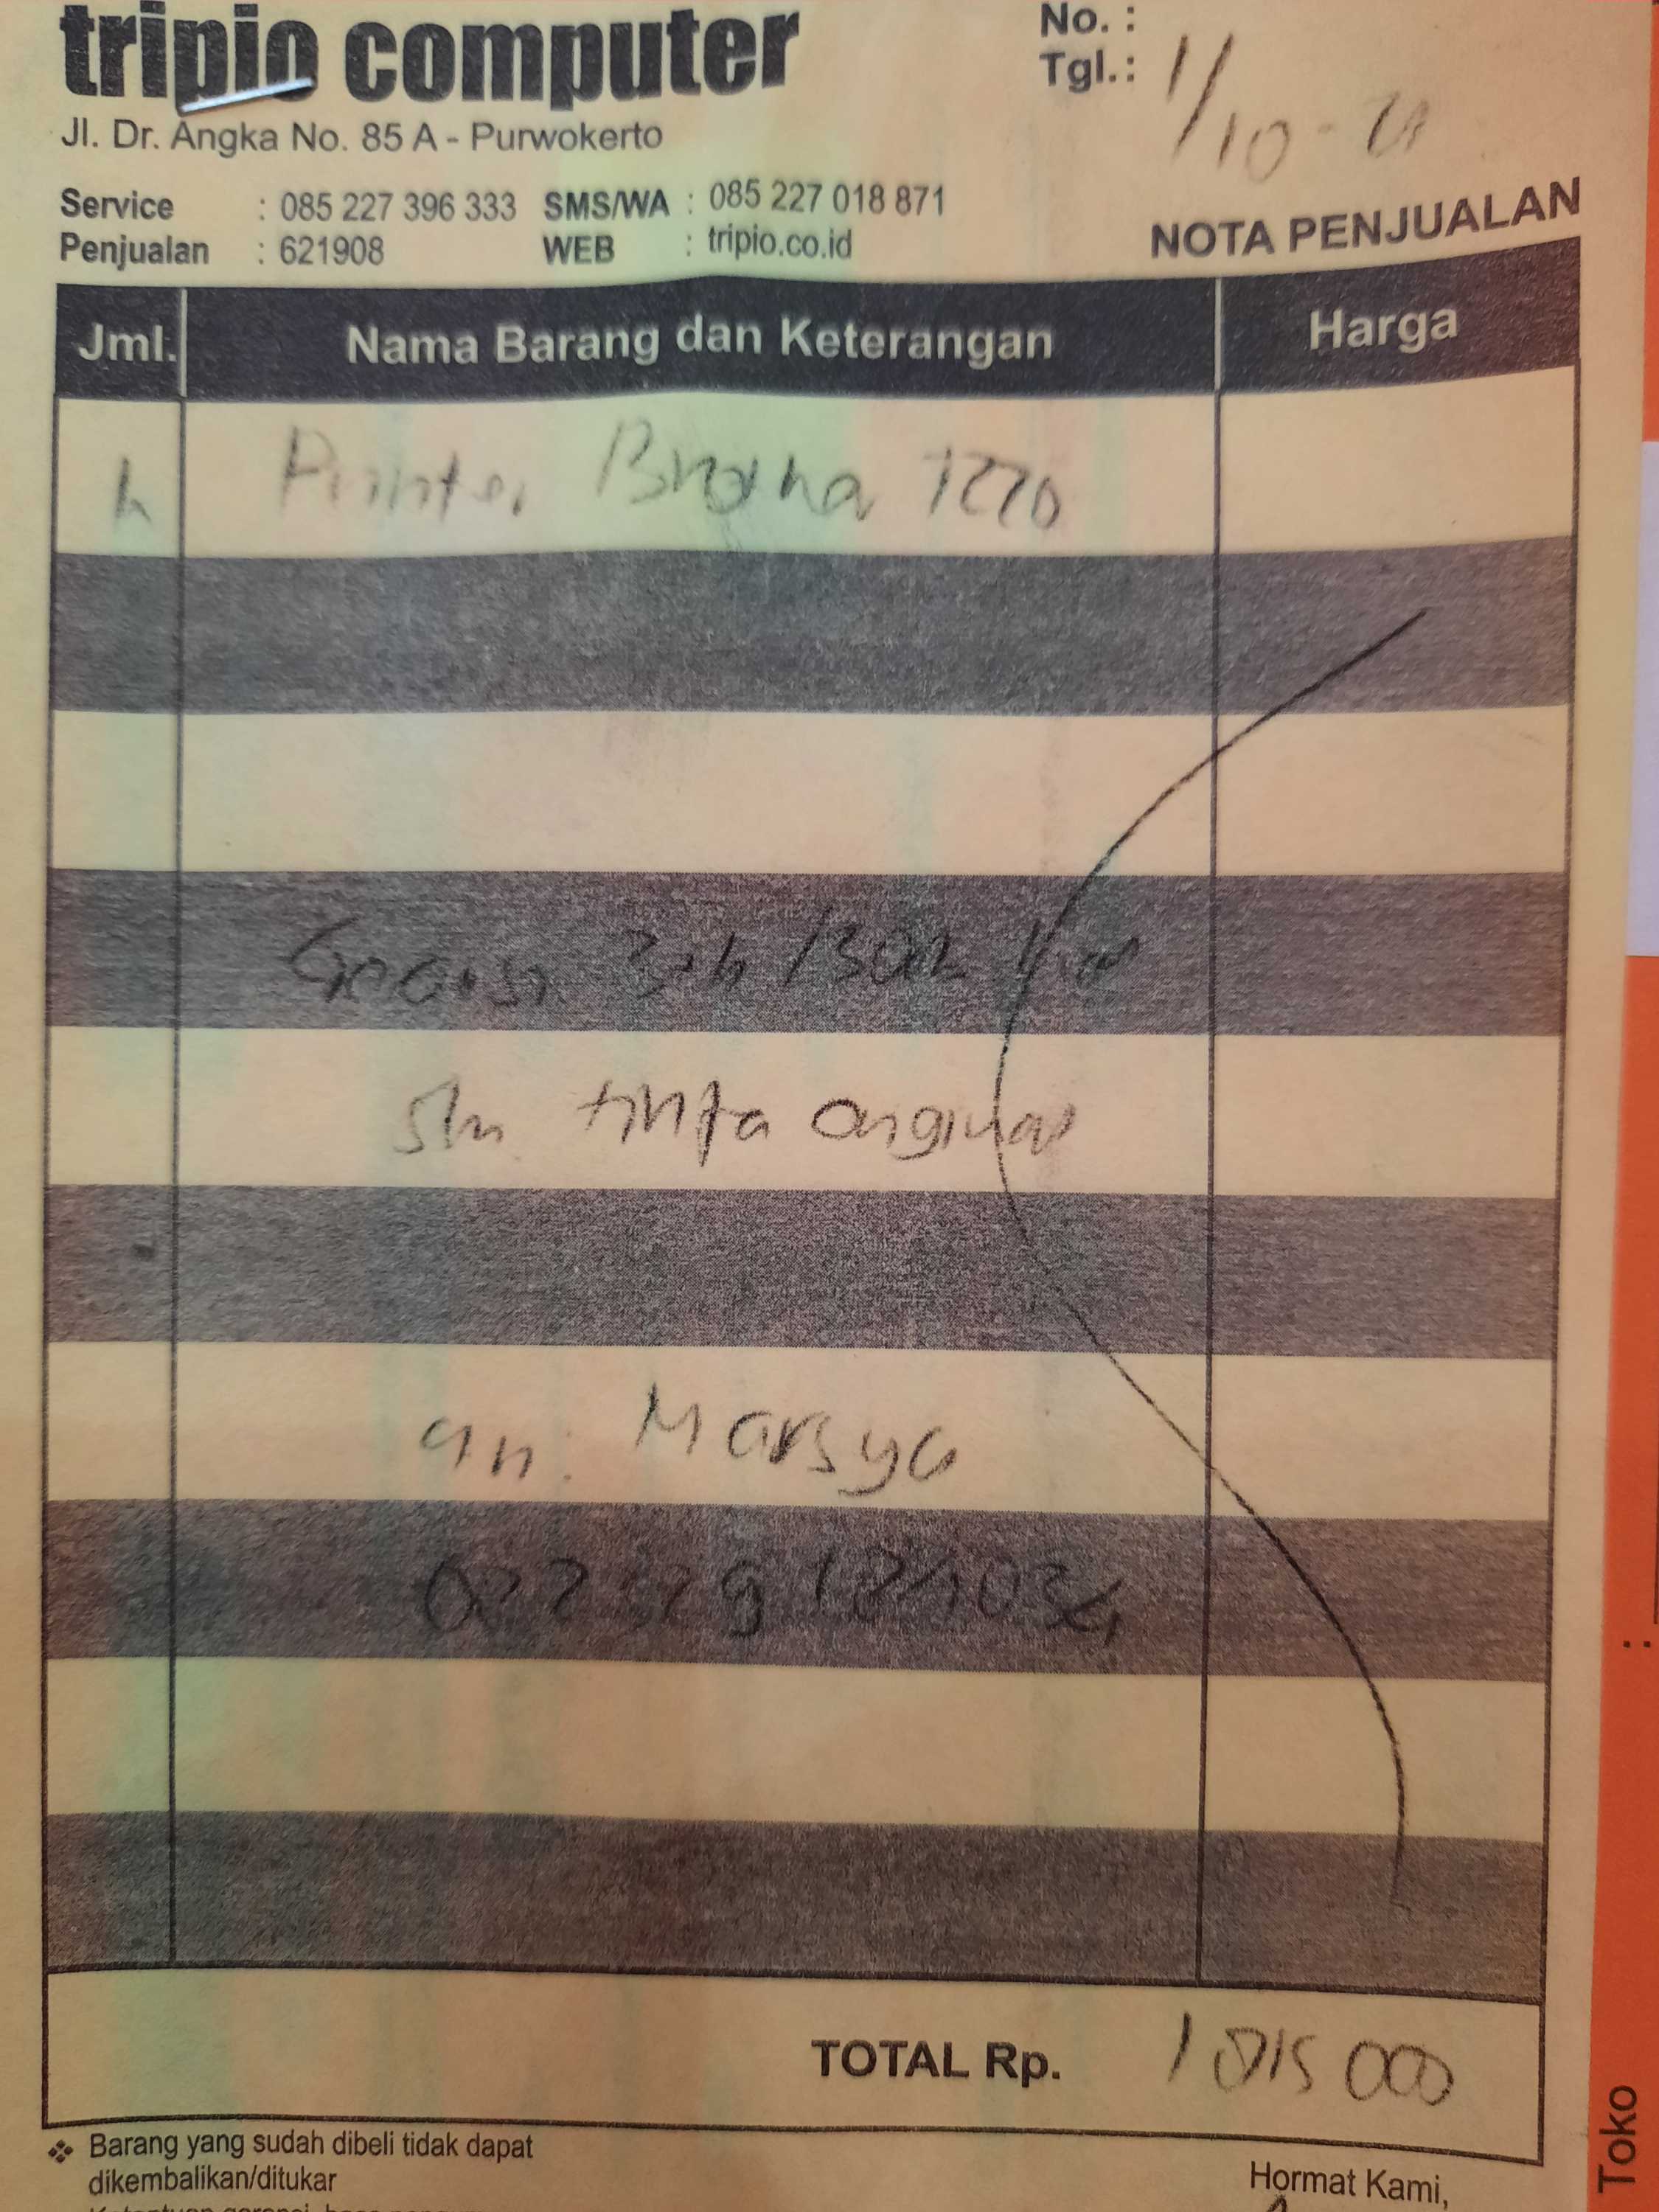 tripio computer
Jl. Dr. Angka No. 85 A - Purwokerto
Service : 085 227 396 333 SMS/WA : 085 227 018 871
Penjualan : 621908 WEB : tripio.co.id
No. :
Tgl. : 1/10 -
NOTA PENJUALAN
Jml. Nama Barang dan Keterangan Harga
Printer Brother T220
tinta original
an. Marsya
TOTAL Rp. 1 815 000
Barang yang sudah dibeli tidak dapat
dikembalikan/ditukar
Hormat Kami,
Toko :